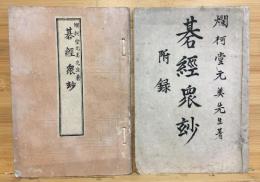 爛柯堂元美先生著
碁經衆妙
爛柯堂元美先生著
碁經衆玅
附録